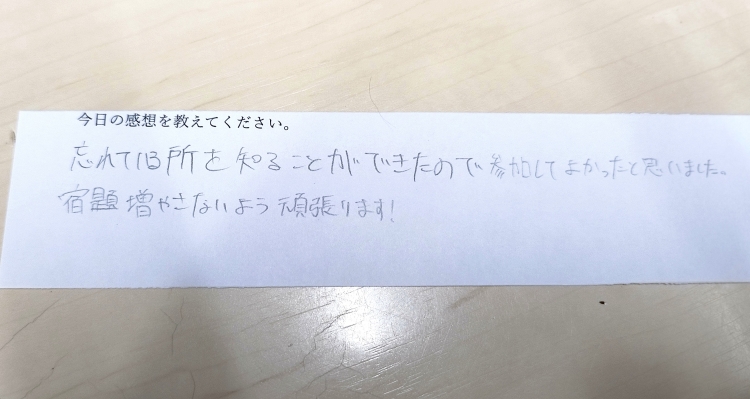 今日の感想を教えてください。
忘れている所を知ることができたので参加してよかったと思いました。
宿題増やさないよう頑張ります!